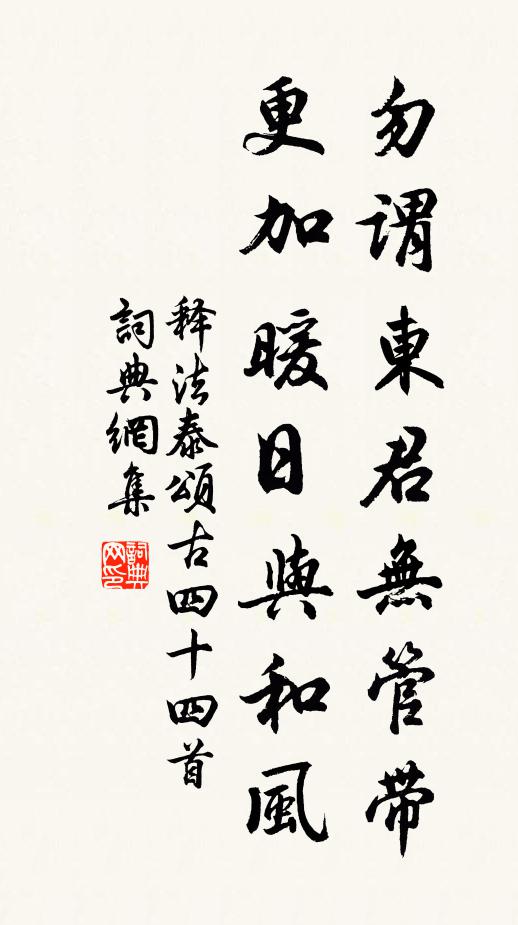 勿謂東君無管帶
更加暖日與和風
释法泰頌古四十四首
詞典網集
詞典网印